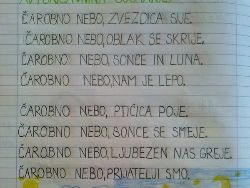 ČAROBNO NEBO, ZVEZDICA SIJE.
ČAROBNO NEBO, OBLAK SE SKRIJE.
ČAROBNO NEBO, SONCE IN LUNA.
ČAROBNO NEBO, NAM JE LEPO.
ČAROBNO NEBO, PTIČICA POJE.
ČAROBNO NEBO, SONCE SE SMEJE.
ČAROBNO NEBO, LJUBEZEN NAS GREJE.
ČAROBNO NEBO, PRIJATELJI SMO.